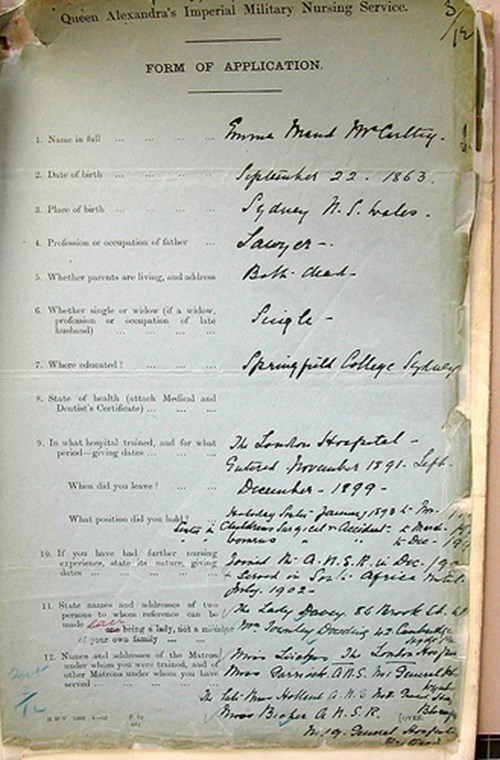 Queen Alexandra's Imperial Military Nursing Service.
3/12
FORM OF APPLICATION.
1. Name in full ... ... ... ... Emma Maud McCarthy.
2. Date of birth ... ... ... ... September 22. 1863.
3. Place of birth ... ... ... ... Sydney N. S. Wales.
4. Profession or occupation of father ... Lawyer -.
5. Whether parents are living, and address Both dead -
6. Whether single or widow (if a widow,
profession or occupation of late
husband) ... ... ... ... Single -
7. Where educated? ... ... ... Springfield College Sydney
8. State of health (attach Medical and
Dentist's Certificate) ... ... ...
9. In what hospital trained, and for what
period—giving dates ... ... ... The London Hospital -
Entered November 1891. Left
When did you leave? ... ... December - 1899 -
What position did you hold? ... Holiday Sister January 1893 to Nov.
Sister in Children's Surgical & Accident - to March
to Dec -
10. If you have had further nursing
experience, state its nature, giving
dates ... ... ... ... Joined the A. N. S. R. in Dec.
& served in South Africa until
July. 1902 -
11. State names and addresses of two
persons to whom reference can be
made being a lady, not a member
of your own family ... ... The Lady 86 Brook St.
Mrs 42 Cambridge
12. Names and addresses of the Matrons
under whom you were trained, and of
other Matrons under whom you have
served ... ... ... ... Miss The London Hospital
Miss A.N.S. No General
The late Miss A.N.S.
Miss A. N. S. R.
General Hospital
[OVER.